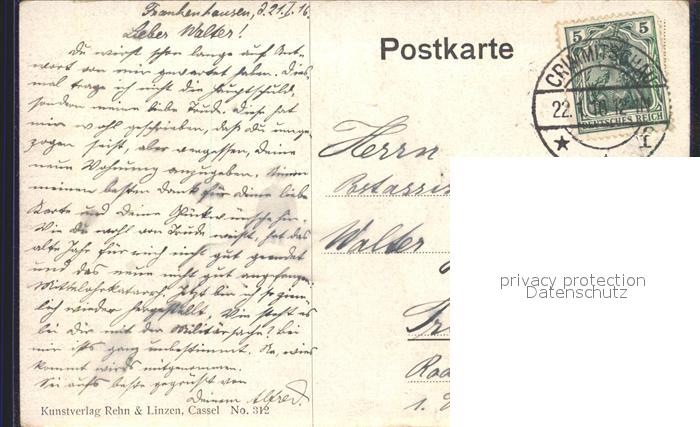 Frankenhausen, d. 21.I.16.
Lieber Walter!
Du wirst schon lange auf Ant-
wort von mir gewartet haben. Dies-
mal trage ich nicht die Hauptschuld,
sondern meine liebe Trude. Diese hat
mir wohl geschrieben, daß Du umge-
zogen seist, aber vergessen, Deine
neue Wohnung anzugeben. Nimm
meinen besten Dank für Deine liebe
Karte und Deine Glückwünsche hin.
Wie Du wohl von Trude weißt, hat das
alte Jahr für mich nicht gut geendet
und das neue nicht gut angefangen:
Mittelohrkatarrh. Jetzt bin ich so ziem-
lich wieder hergestellt. Wie steht es
bei Dir mit der Militärsache? Bei
mir ists ganz unbestimmt. Na, wies
kommt wirds mitgenommen.
Sei aufs beste gegrüßt von
Deinem Alfred.
Kunstverlag Rehn & Linzen, Cassel No. 312
Postkarte
5 5
DEUTSCHES REICH
CRIMMITSCHAU
22.
Herrn
Walter
privacy protection
Datenschutz